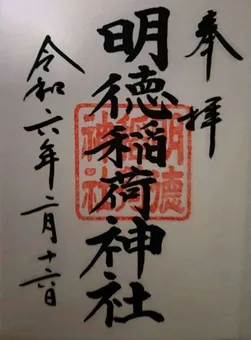 奉拝
明徳稲荷神社
明徳
稲荷
神社
令和六年二月十六日